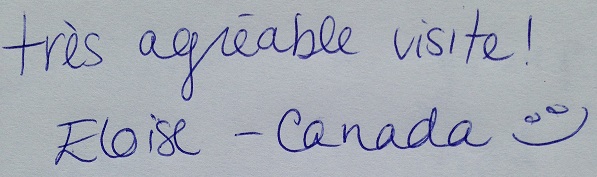 très agréable visite!
Eloise - Canada